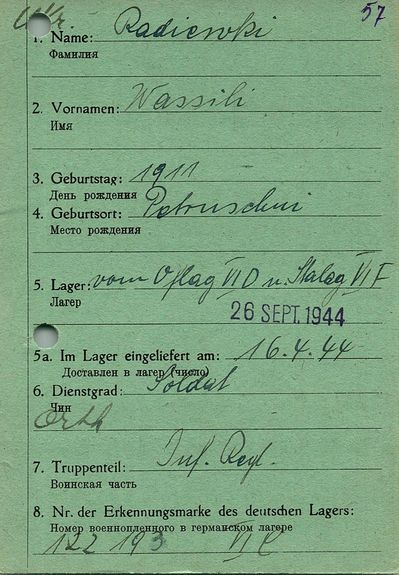 Ukr. 57
1. Name: Radiewski
Фамилия
2. Vornamen: Wassili
Имя
3. Geburtstag: 1911
День рождения
4. Geburtsort: Petruschni
Место рождения
5. Lager: vom Oflag VI D n. Stalag VI F
Лагер
26 SEPT. 1944
5a. Im Lager eingeliefert am: 16.4.44
Доставлен в лагер (число)
6. Dienstgrad: Soldat
Чин
Orth
7. Truppenteil: Inf. Regt.
Воинская часть
8. Nr. der Erkennungsmarke des deutschen Lagers:
Номер военнопленного в германском лагере
122 193 VI C